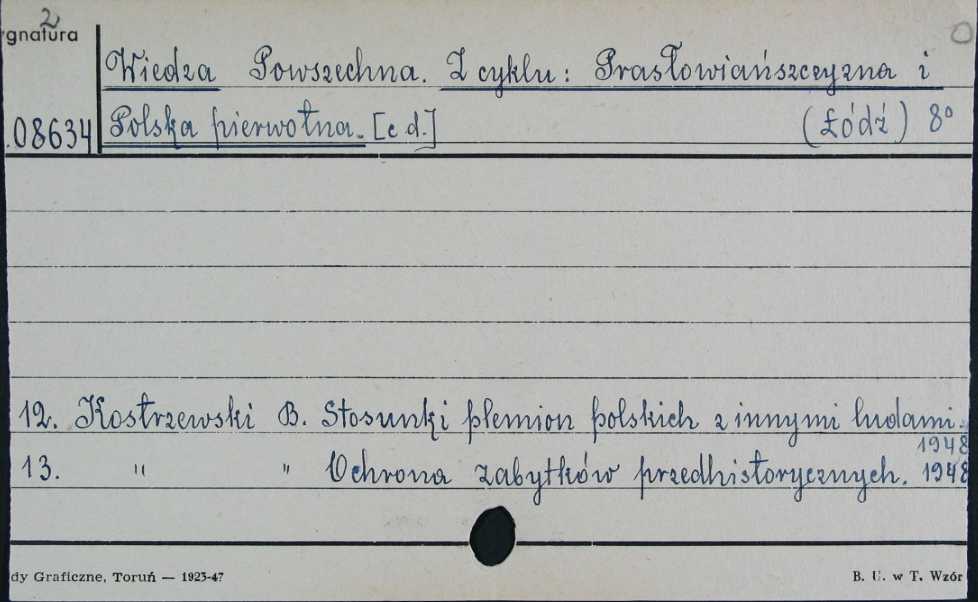 2
gnatura
Wiedza Powszechna. Z cyklu: Prasłowiańszczyzna i
08634 Polska pierwotna. [c d.] (Łódź) 8º
12. Kostrzewski B. Stosunki plemion polskich z innymi ludami.
1948
13. " " Ochrona zabytków przedhistorycznych. 1948
dy Graficzne, Toruń — 1923-47 B. U. w T. Wzór